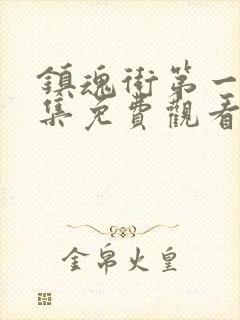 鎮魂街第一
集免費觀看
金帛火皇